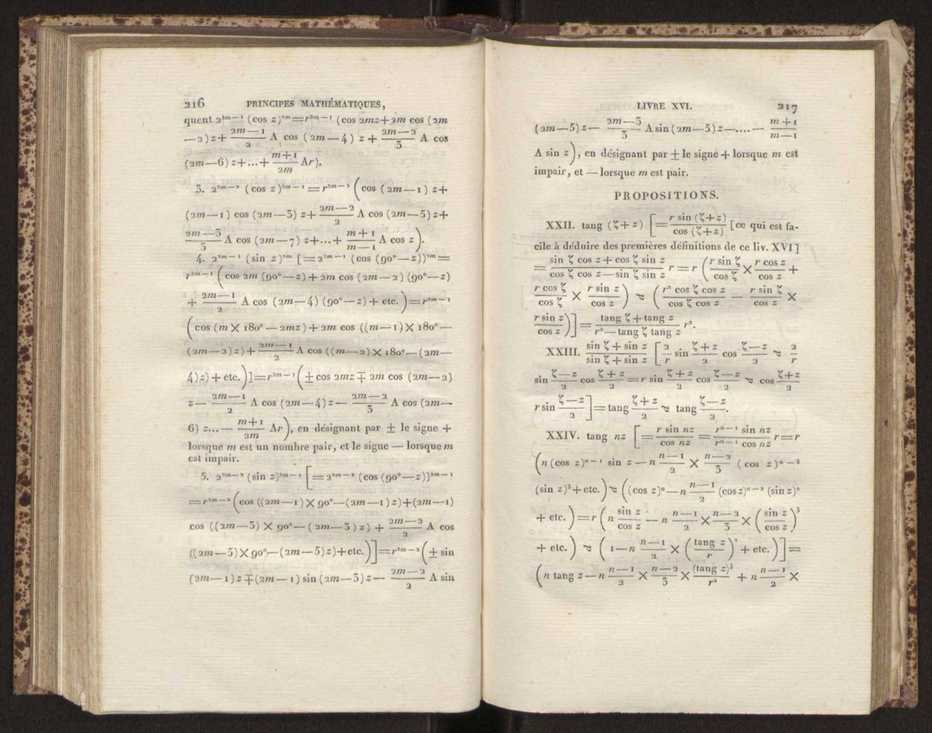 216 PRINCIPES MATHÉMATIQUES,
quent 2²ᵐ⁻¹ (cos z)²ᵐ=r²ᵐ⁻¹ (cos 2mz+2m cos (2m
—2)z+ (2m—1)/2 A cos (2m—4) z + (2m—2)/3 A cos
(2m—6) z+...+ (m+1)/2m Ar).
3. 2²ᵐ⁻² (cos z)²ᵐ⁻¹ = r²ᵐ⁻² (cos (2m—1) z+
(2m—1) cos (2m—3) z+ (2m—2)/2 A cos (2m—5) z+
(2m—3)/3 A cos (2m—7) z+...+ (m+1)/(m—1) A cos z).
4. 2²ᵐ⁻¹ (sin z)²ᵐ [=2²ᵐ⁻¹ (cos (90°—z))²ᵐ=
r²ᵐ⁻¹ (cos 2m (90°—z) + 2m cos (2m—2) (90°—z)
+ (2m—1)/2 A cos (2m—4) (90°—z) + etc.) = r²ᵐ⁻¹
(cos (m × 180° — 2mz) + 2m cos ((m—1) × 180° —
(2m—2) z) + (2m—1)/2 A cos ((m—2) × 180° — (2m—
4)z) + etc.)] = r²ᵐ⁻¹ (± cos 2mz ∓ 2m cos (2m—2)
z— (2m—1)/2 A cos (2m—4) z— (2m—2)/3 A cos (2m—
6) z...— (m+1)/2m Ar), en désignant par ± le signe +
lorsque m est un nombre pair, et le signe — lorsque m
est impair.
5. 2²ᵐ⁻² (sin z)²ᵐ⁻¹ [=2²ᵐ⁻² (cos (90°—z))²ᵐ⁻¹
=r²ᵐ⁻² (cos ((2m—1) × 90°—(2m—1) z)+(2m—1)
cos ((2m—3) × 90°—(2m—3) z) + (2m—2)/2 A cos
((2m—5) × 90°—(2m—5)z)+etc.)] = r²ᵐ⁻² (± sin
(2m—1) z ∓ (2m—1) sin (2m—3) z — (2m—2)/2 A sin
LIVRE XVI. 217
(2m—5) z— (2m—3)/3 A sin (2m—5) z—....— (m+1)/(m—1)
A sin z), en désignant par ± le signe + lorsque m est
impair, et — lorsque m est pair.
PROPOSITIONS.
XXII. tang (ζ+z) [= r sin (ζ+z)/cos (ζ+z) [ce qui est fa-
cile à déduire des premières définitions de ce liv. XVI]
= (sin ζ cos z + cos ζ sin z)/(cos ζ cos z — sin ζ sin z) r = r (r sin ζ/cos ζ × r cos z/cos z +
r cos ζ/cos ζ × r sin z/cos z) ≂ (r² cos ζ cos z/cos ζ cos z — r sin ζ/cos z ×
r sin z/cos z)] = (tang ζ + tang z)/(r² — tang ζ tang z) r².
XXIII. (sin ζ + sin z)/(sin ζ + sin z) [2/r sin (ζ+z)/2 cos (ζ—z)/2 ≂ 2/r
sin (ζ—z)/2 cos (ζ+z)/2 = r sin (ζ+z)/2 cos (ζ—z)/2 ≂ cos (ζ+z)/2
r sin (ζ—z)/2] = tang (ζ+z)/2 ≂ tang (ζ—z)/2.
XXIV. tang nz [= r sin nz/cos nz = rⁿ⁻¹ sin nz/rⁿ⁻¹ cos nz r = r
(n (cos z)ⁿ⁻¹ sin z — n (n—1)/2 × (n—2)/3 (cos z)ⁿ⁻³
(sin z)³ + etc.) ≂ ((cos z)ⁿ — n (n—1)/2 (cos z)ⁿ⁻² (sin z)²
+ etc.) = r (n sin z/cos z — n (n—1)/2 × (n—2)/3 × (sin z/cos z)³
+ etc.) ≂ (1—n (n—1)/2 × (tang z/r)² + etc.)] =
(n tang z — n (n—1)/2 × (n—2)/3 × (tang z)³/r² + n (n—1)/2 ×